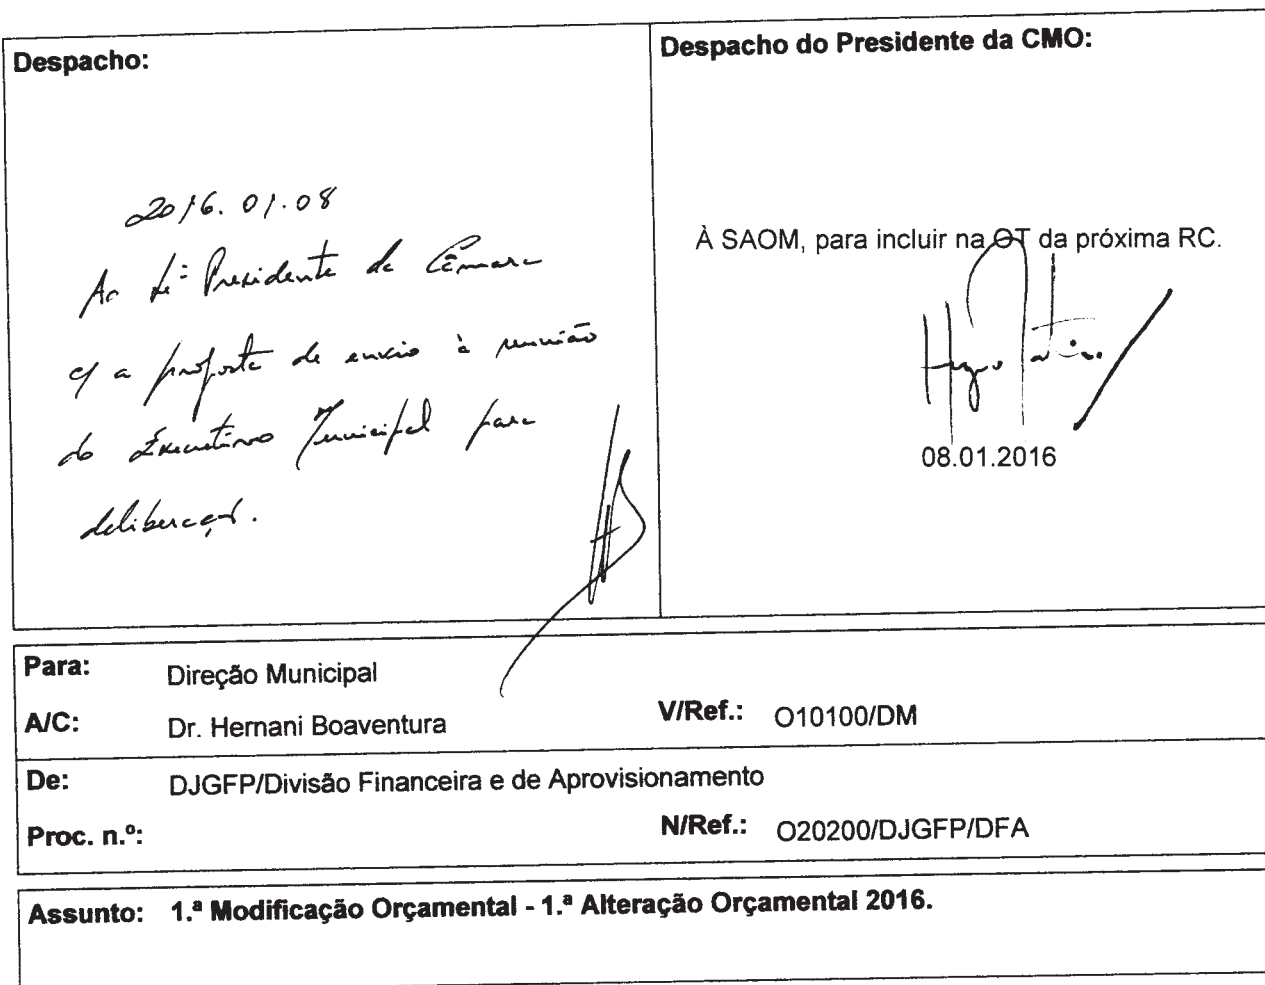 Despacho:
2016.01.08
Ao Sr. Presidente da Câmara
c/ a proposta de envio à reunião
do Executivo Municipal para
deliberação.
Despacho do Presidente da CMO:
À SAOM, para incluir na OT da próxima RC.
08.01.2016
Para: Direção Municipal
A/C: Dr. Hernani Boaventura V/Ref.: O10100/DM
De: DJGFP/Divisão Financeira e de Aprovisionamento
Proc. n.º: N/Ref.: O20200/DJGFP/DFA
Assunto: 1.ª Modificação Orçamental - 1.ª Alteração Orçamental 2016.